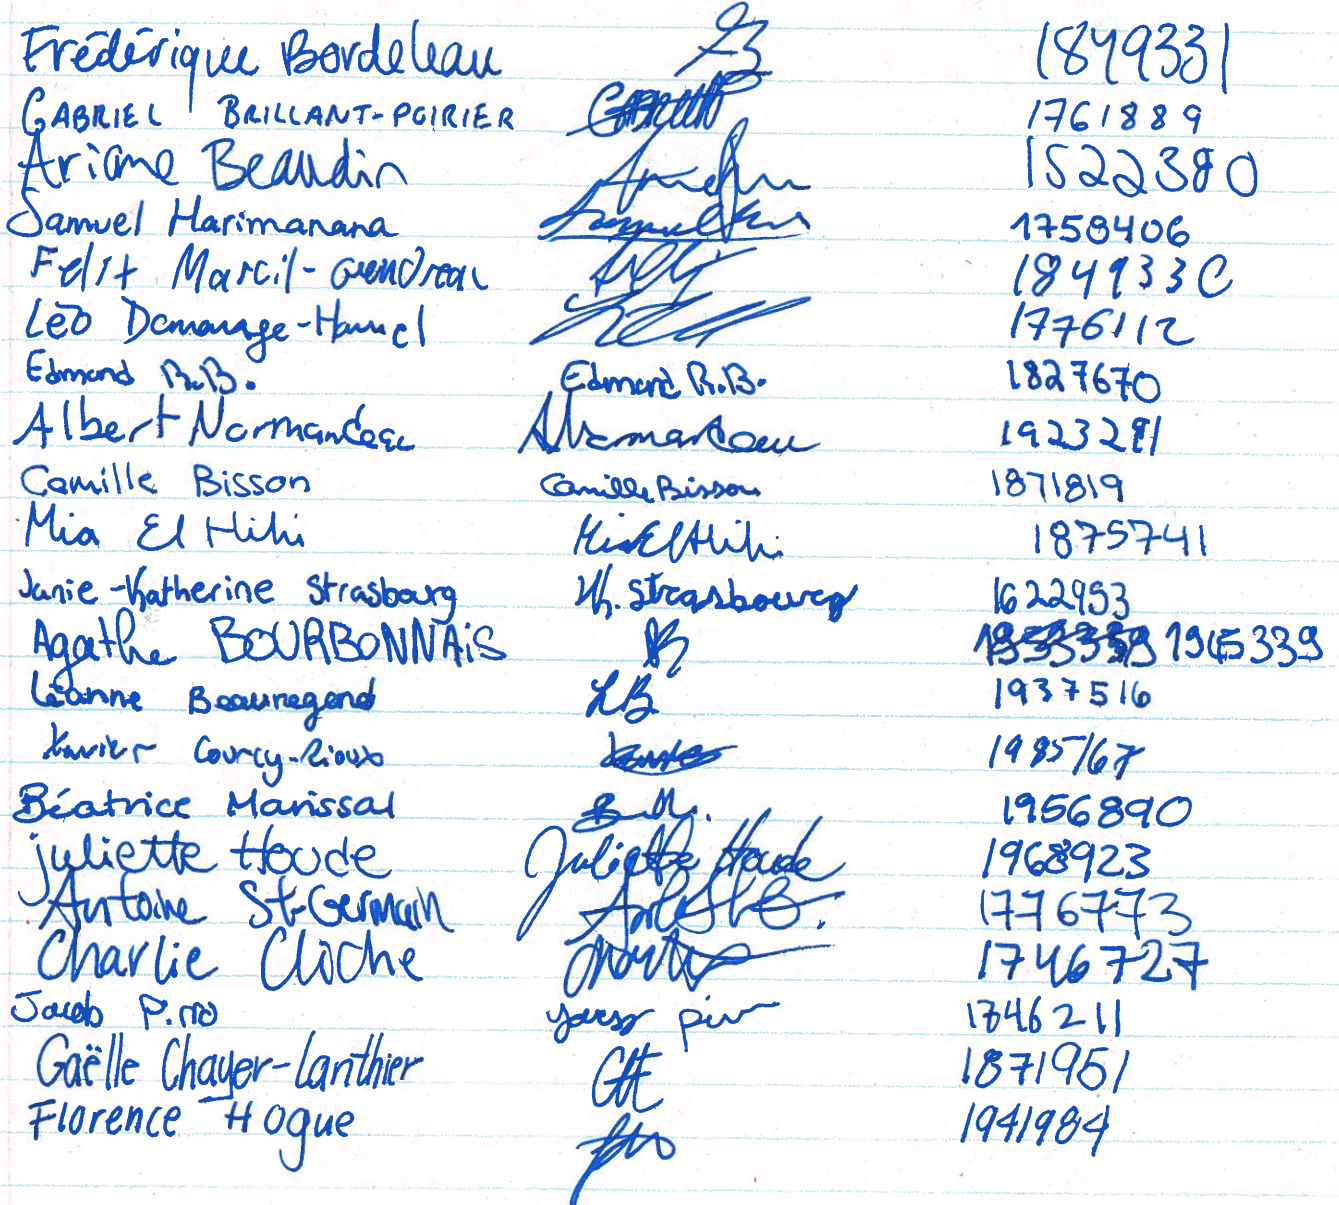 Frédérique Bordeleau 1849331
GABRIEL BRILLANT-POIRIER 1761889
Ariane Beaudin 1522380
Samuel Harimanana 1758406
Félix Marcil-Gendreau 1849330
Léo Demarage-Hamel 1776112
Edmond R.B. Edmond R.B. 1827670
Albert Normandeau 1923281
Camille Bisson Camille Bisson 1871819
Mia El Hihi Mia El Hihi 1875741
Janie-Katherine Strasbourg JK. Strasbourg 1622953
Agathe BOURBONNAiS AB 1945339
Léanne Beauregard LB 1937516
Xavier Courcy-Rioux 1985167
Béatrice Marissal B.M. 1956890
juliette Houde Juliette Houde 1968923
Antoine St-Germain 1776773
Charlie Cloche 1746727
Jacob 1746211
Gaëlle Chayer-Lanthier 1871951
Florence Hogue 1941984